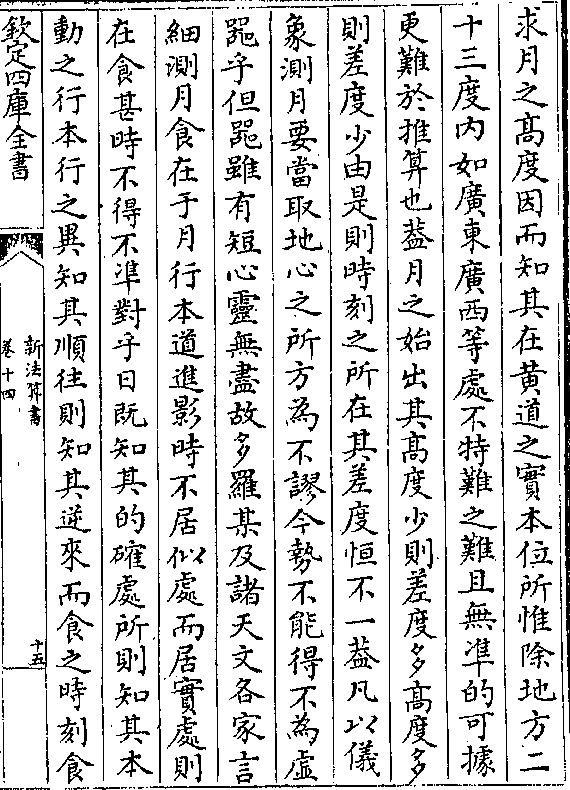 求月之髙度因而知其在黄道之實本位所惟除地方二
十三度内如廣東廣西等處不特難之難且無凖的可據
更難於推算也葢月之始出其髙度少則差度多髙度多
則差度少由是則時刻之所在其差度恒不一葢凡以儀
象測月要當取地心之所方為不謬今勢不能得不為虚
器乎但器雖有短心靈無盡故多羅某及諸天文各家言
細測月食在于月行本道進影時不居似處而居實處則
在食甚時不得不凖對乎日既知其的確處所則知其本
動之行本行之異知其順往則知其逆來而食之時刻食
欽定四庫全書
新法算書
卷十四
十五